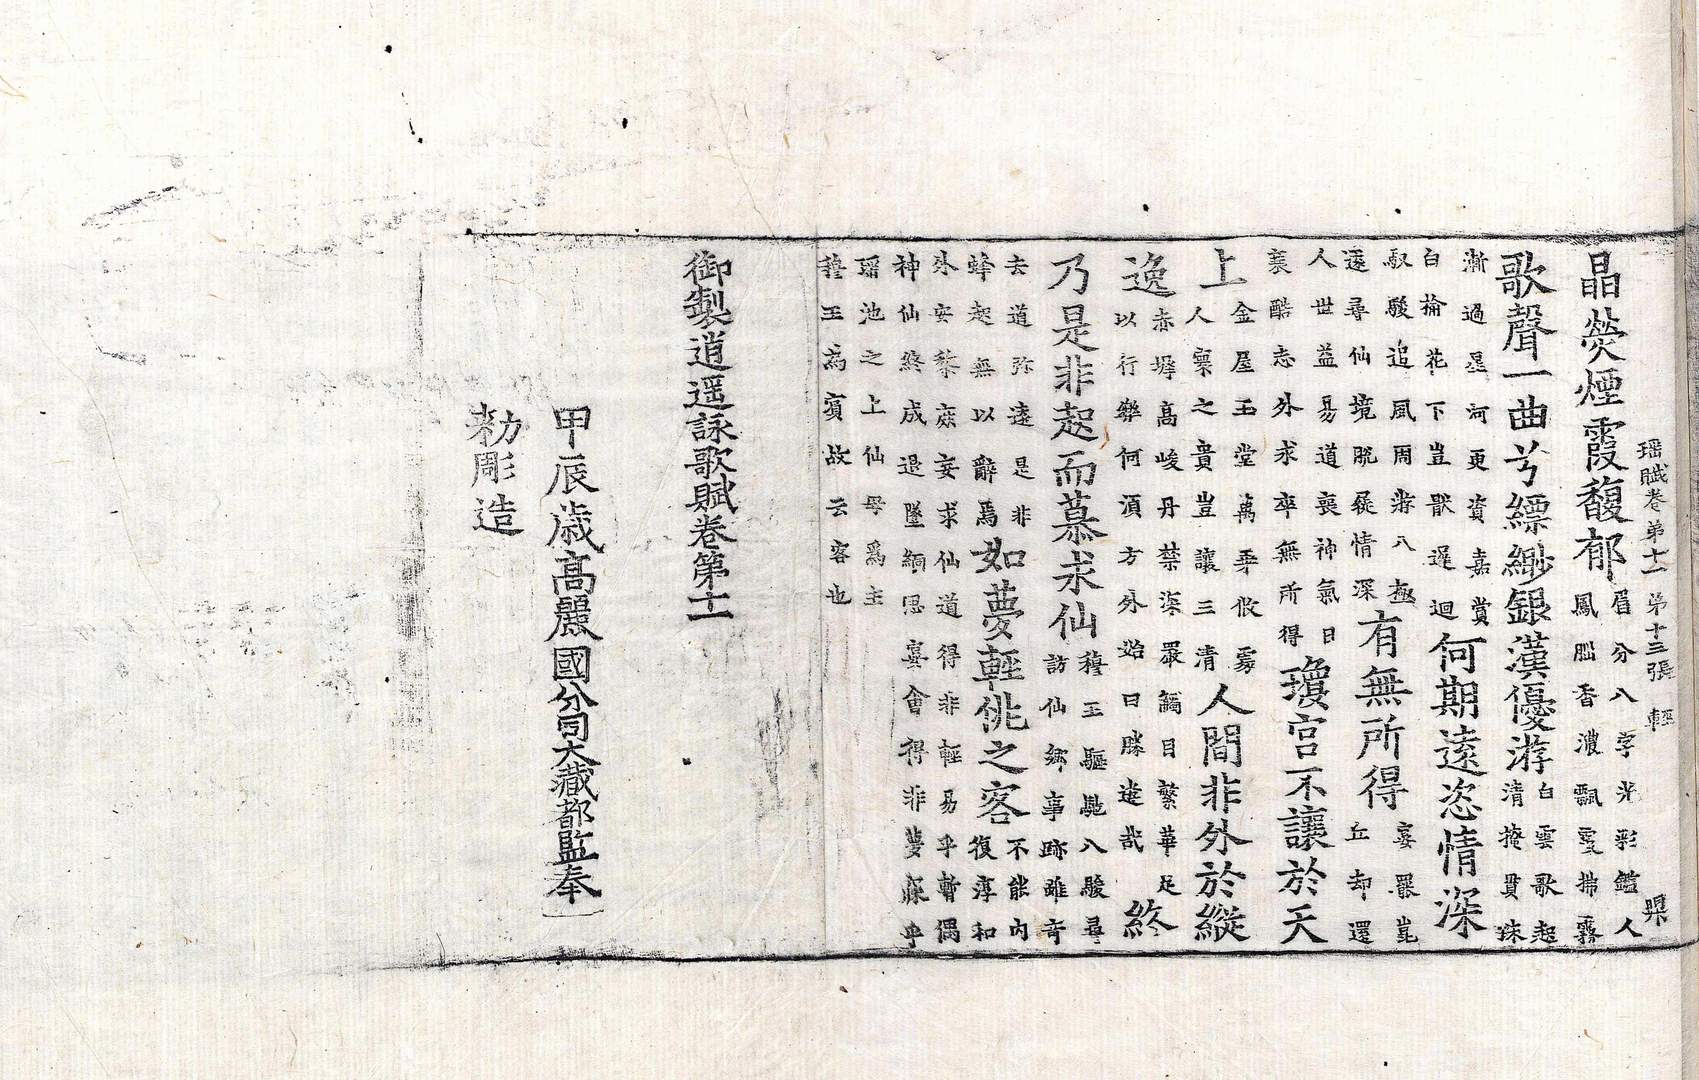 瑶賦卷第十一 第十三張 輕
晶熒煙霞馥郁 眉分八字光彩鑑人 鳳腦香濃飄雯拂霧
歌聲一曲兮縹緲銀漢優游 白雲歌起 清掩貫珠
漸過星河更資嘉賞 白榆花下豈猒遲迴 何期遠恣情深
馭駿追風周游八極 遂尋仙境脫屣情深 有無所得 宴罷崑 丘却還
人世益易道喪神氣日 衰酷志外求卒無所得 瓊宮不讓於天
上 金屋玉堂萬乘攸處 人稟之貴豈讓三清 人間非外於縱
逸 赤墀高峻丹禁深嚴觸目繁華足 以行樂何須方外始曰勝遊哉 終
乃是非起而慕求仙 穆王驅馳八駿尋 訪仙鄉事跡雖奇
去道弥遠是非 蜂起無以辭焉 如夢輕佻之客 不能內 復淳和
外安黎庶妄求仙道得非輕易乎暫偶 神仙終成退墜緬思宴會得非夢寐乎
瑶池之上仙母爲主 穆王為賓故云客也
御製逍遥詠歌賦卷第十一
甲辰歳高麗國分司大藏都監奉
勑彫造